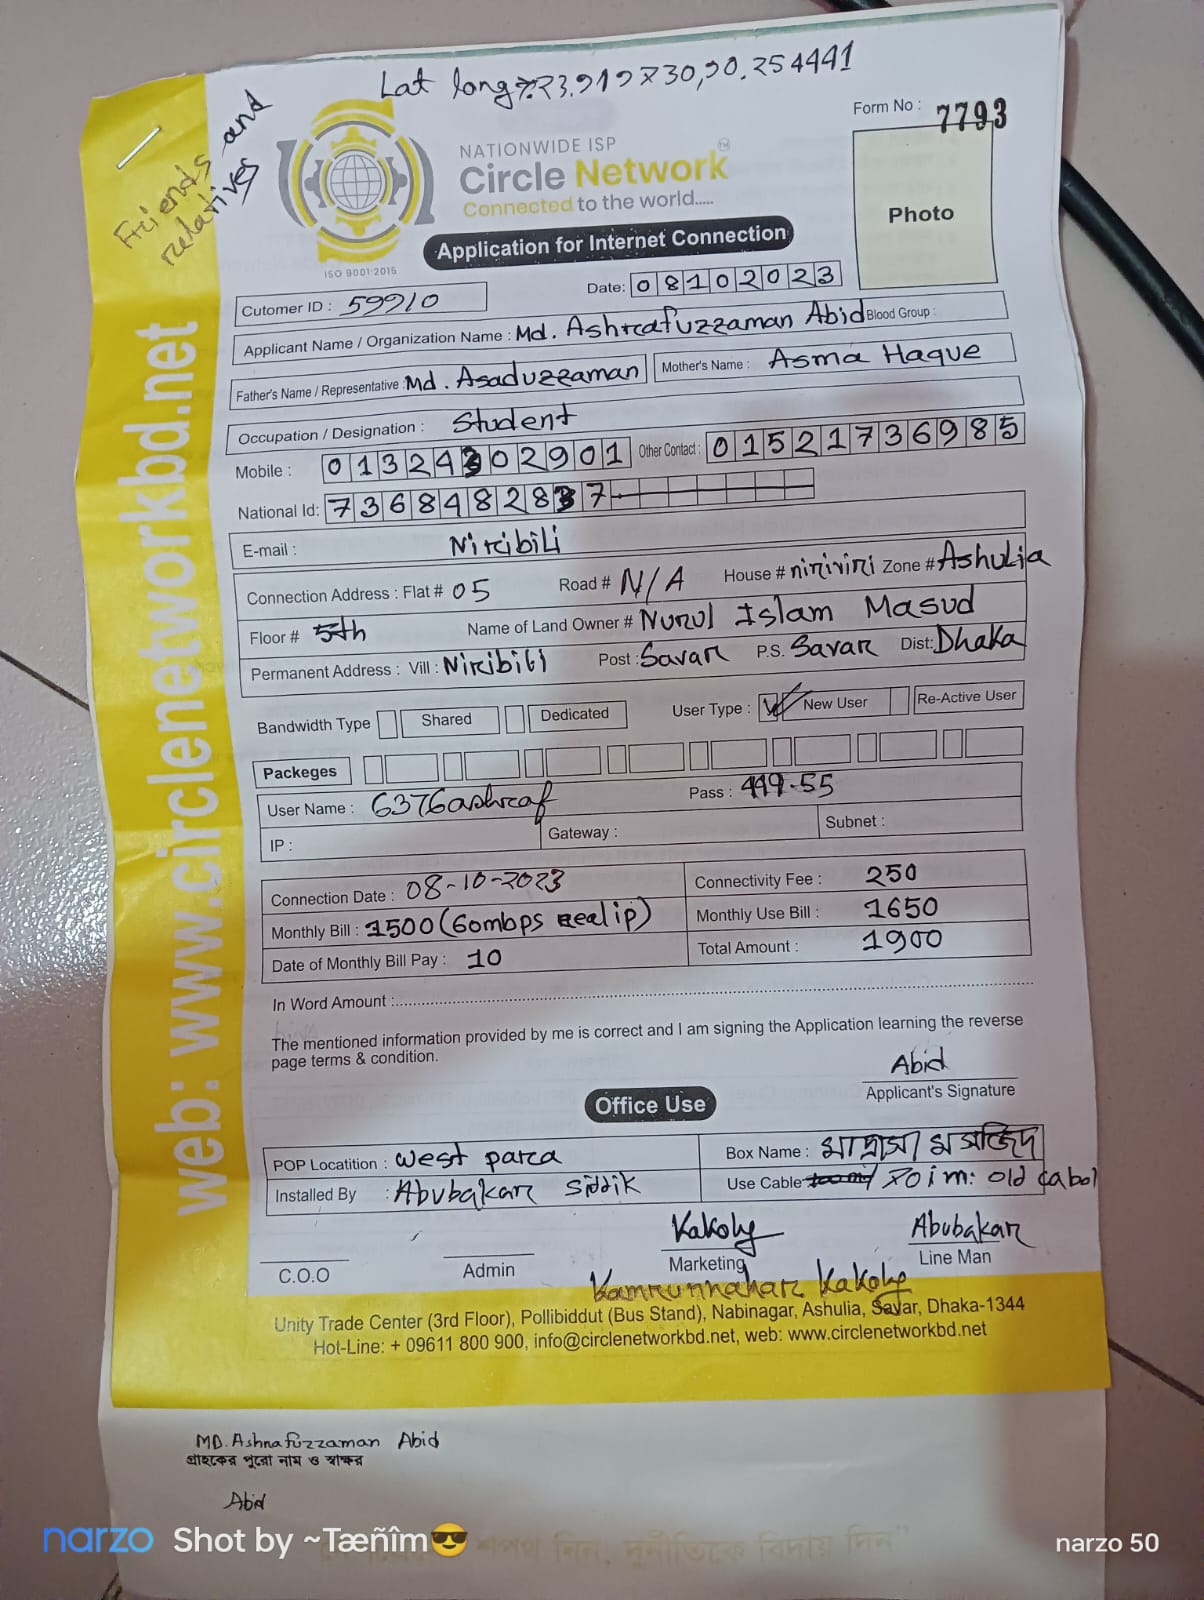 Lat long: 23.919830,90.254441
Friends and
relatives
Form No : 7793
NATIONWIDE ISP
Circle Network TM
Connected to the world.....
Photo
ISO 9001:2015
Application for Internet Connection
Date: 08102023
Cutomer ID : 59910
Applicant Name / Organization Name : Md. Ashrafuzzaman Abid Blood Group :
Father's Name / Representative : Md. Asaduzzaman Mother's Name : Asma Haque
Occupation / Designation : Student
Mobile : 01324302901 Other Contact : 01521736985
National Id: 7368482837
E-mail : Niribili
Connection Address : Flat # 05 Road # N/A House # niriviri Zone # Ashulia
Floor # 5th Name of Land Owner # Nurul Islam Masud
Permanent Address : Vill : Niribili Post : Savar P.S. Savar Dist: Dhaka
Bandwidth Type Shared Dedicated User Type : New User Re-Active User
Packeges
User Name : 6376ashraf Pass : 449.55
IP : Gateway : Subnet :
Connection Date : 08-10-2023 Connectivity Fee : 250
Monthly Bill : 1500 (60mbps real ip) Monthly Use Bill : 1650
Date of Monthly Bill Pay : 10 Total Amount : 1900
In Word Amount :
The mentioned information provided by me is correct and I am signing the Application learning the reverse
page terms & condition.
Abid
Applicant's Signature
Office Use
POP Locatition : West para Box Name : মাদ্রাসা মসজিদ
Installed By : Abubakar Siddik Use Cable old cabol
Kakoly Abubakar
C.O.O Admin Marketing Line Man
Kamrunnahar Kakoly
Unity Trade Center (3rd Floor), Pollibiddut (Bus Stand), Nabinagar, Ashulia, Savar, Dhaka-1344
Hot-Line: + 09611 800 900, info@circlenetworkbd.net, web: www.circlenetworkbd.net
web: www.circlenetworkbd.net
MD. Ashrafuzzaman Abid
গ্রাহকের পুরো নাম ও স্বাক্ষর
Abid
শপথ নিন, দুর্নীতিকে বিদায় দিন"
narzo Shot by ~Tæñîm😎 narzo 50